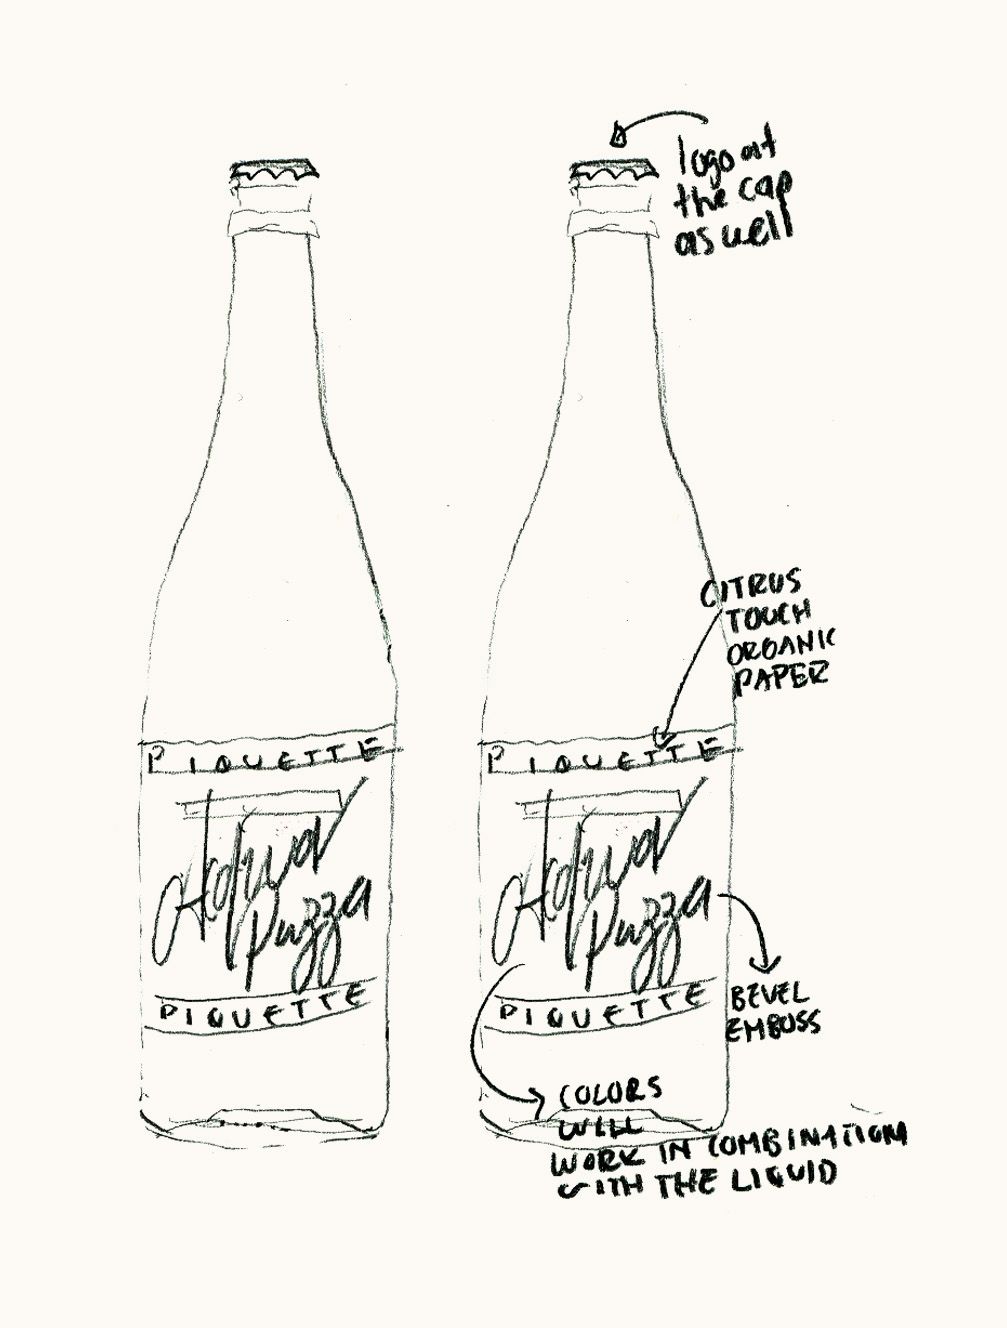 logo at
the cap
as well
CITRUS
TOUCH
ORGANIC
PAPER
PIQUETTE
PIQUETTE
Acqua
Puzza
Acqua
Puzza
BEVEL
EMBOSS
PIQUETTE
PIQUETTE
COLORS
WILL
WORK IN COMBINATION
WITH THE LIQUID